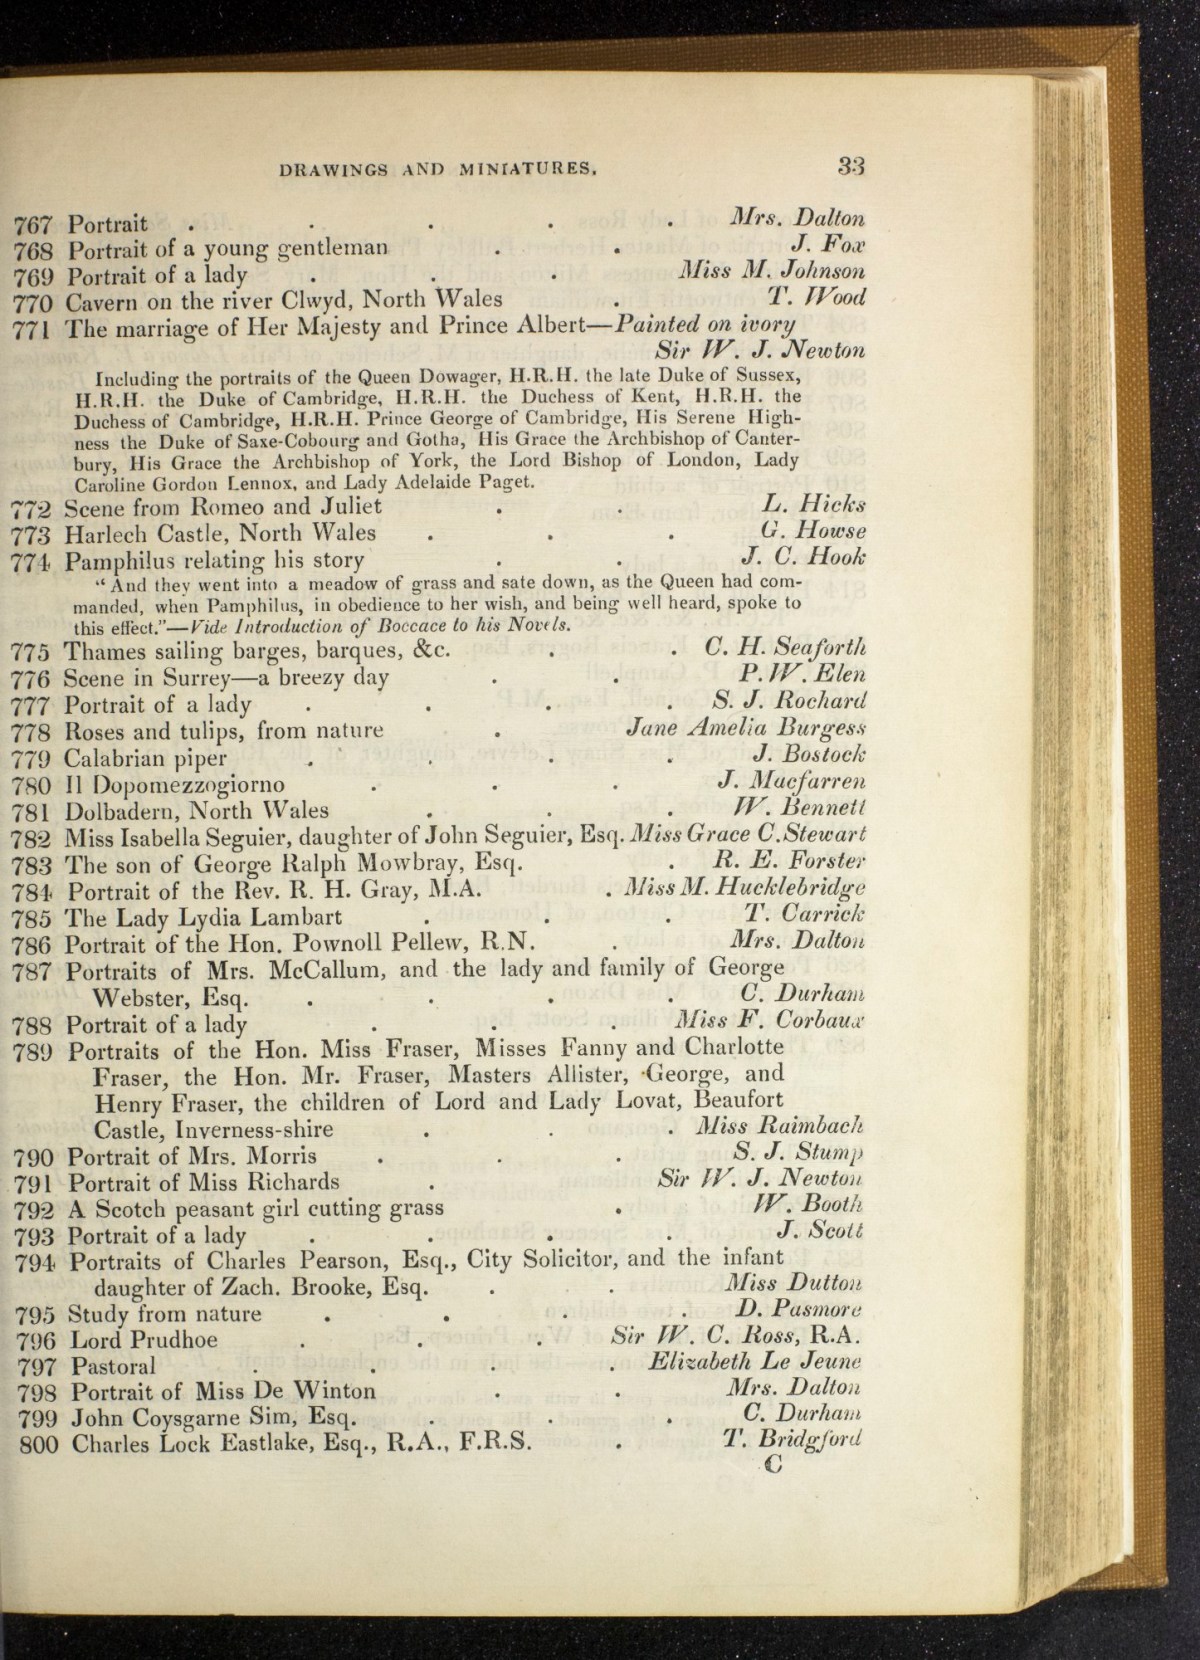 DRAWINGS AND MINIATURES. 33
767 Portrait . . . . . Mrs. Dalton
768 Portrait of a young gentleman . . J. Fox
769 Portrait of a lady . . . Miss M. Johnson
770 Cavern on the river Clwyd, North Wales . T. Wood
771 The marriage of Her Majesty and Prince Albert—Painted on ivory
Sir W. J. Newton
Including the portraits of the Queen Dowager, H.R.H. the late Duke of Sussex,
H.R.H. the Duke of Cambridge, H.R.H. the Duchess of Kent, H.R.H. the
Duchess of Cambridge, H.R.H. Prince George of Cambridge, His Serene High-
ness the Duke of Saxe-Cobourg and Gotha, His Grace the Archbishop of Canter-
bury, His Grace the Archbishop of York, the Lord Bishop of London, Lady
Caroline Gordon Lennox, and Lady Adelaide Paget.
772 Scene from Romeo and Juliet . . L. Hicks
773 Harlech Castle, North Wales . . . G. Howse
774 Pamphilus relating his story . . J. C. Hook
"And they went into a meadow of grass and sate down, as the Queen had com-
manded, when Pamphilus, in obedience to her wish, and being well heard, spoke to
this effect."—Vide Introduction of Boccace to his Novels.
775 Thames sailing barges, barques, &c. . . C. H. Seaforth
776 Scene in Surrey—a breezy day . . P. W. Elen
777 Portrait of a lady . . . . S. J. Rochard
778 Roses and tulips, from nature . Jane Amelia Burgess
779 Calabrian piper . . . . J. Bostock
780 Il Dopomezzogiorno . . . J. Macfarren
781 Dolbadern, North Wales . . . W. Bennett
782 Miss Isabella Seguier, daughter of John Seguier, Esq. Miss Grace C. Stewart
783 The son of George Ralph Mowbray, Esq. . R. E. Forster
784 Portrait of the Rev. R. H. Gray, M.A. . Miss M. Hucklebridge
785 The Lady Lydia Lambart . . . T. Carrick
786 Portrait of the Hon. Pownoll Pellew, R.N. . Mrs. Dalton
787 Portraits of Mrs. McCallum, and the lady and family of George
Webster, Esq. . . . . C. Durham
788 Portrait of a lady . . . Miss F. Corbaux
789 Portraits of the Hon. Miss Fraser, Misses Fanny and Charlotte
Fraser, the Hon. Mr. Fraser, Masters Allister, George, and
Henry Fraser, the children of Lord and Lady Lovat, Beaufort
Castle, Inverness-shire . . . Miss Raimbach
790 Portrait of Mrs. Morris . . . S. J. Stump
791 Portrait of Miss Richards . Sir W. J. Newton
792 A Scotch peasant girl cutting grass . W. Booth
793 Portrait of a lady . . . . J. Scott
794 Portraits of Charles Pearson, Esq., City Solicitor, and the infant
daughter of Zach. Brooke, Esq. . . Miss Dutton
795 Study from nature . . . . D. Pasmore
796 Lord Prudhoe . . . Sir W. C. Ross, R.A.
797 Pastoral . . . . Elizabeth Le Jeune
798 Portrait of Miss De Winton . . Mrs. Dalton
799 John Coysgarne Sim, Esq. . . . C. Durham
800 Charles Lock Eastlake, Esq., R.A., F.R.S. . T. Bridgford
C